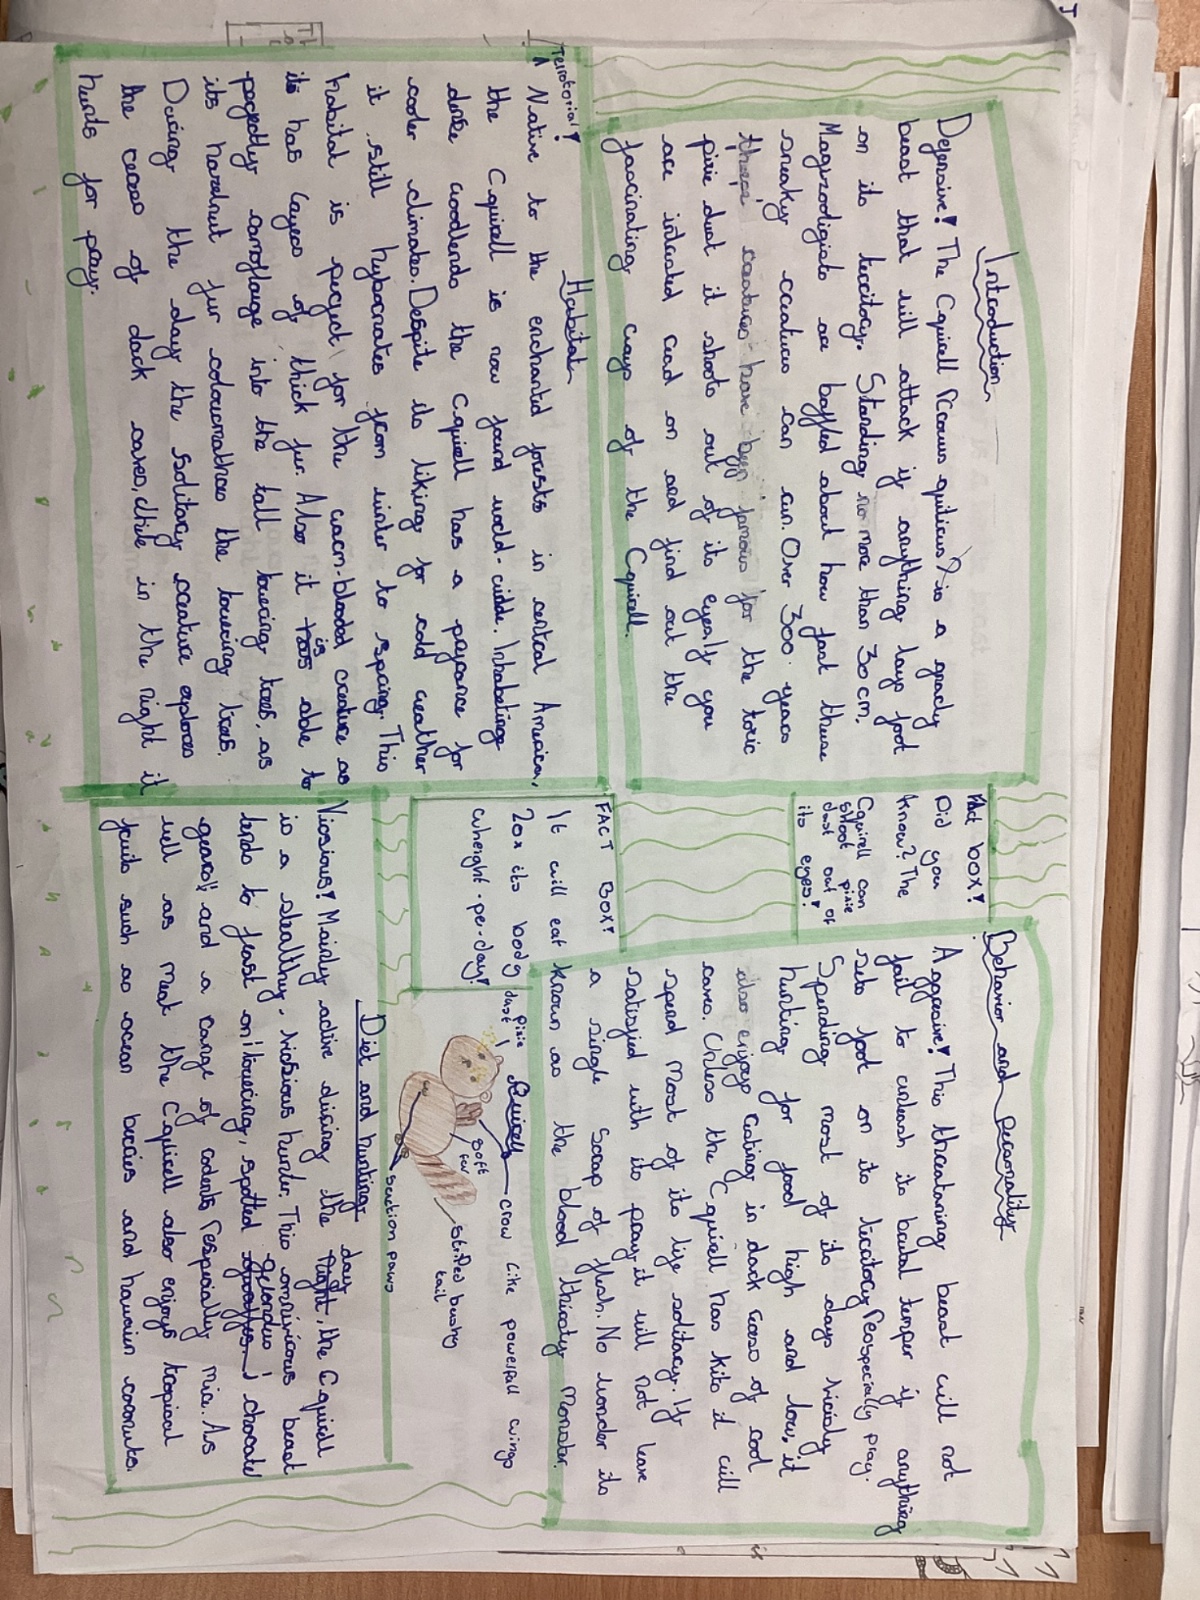 Introduction
Defensive! The Cquirell (Picouus quiticus) is a greedy
beast that will attack if anything lays foot
on its territory. Standing no more than 30cm,
Magizoologists are baffled about how fast these
sneaky creatures can run. Over 300 years
these creatures have been famous for the toxic
pixie dust it shoots out of its eyes! If you
are intrested read on and find out the
fascinating ways of the Cquirell.
Fact box!
Did you
know? The
Cquirell can
shoot pixie
dust out of
its eyes!
Behavior and personality
Aggresive! This threatening beast will not
fail to unleash its brutal temper if anything
sets foot on its territory (especially pray.
Spending most of its days viciously
hunting for food high and low, it
also enjoys eating in dark caves of cool
caves. Unless the Cquirell has kits it will
spend most of its life solitary. If
satisfied with its pray it will not leave
a single scrap of flesh. No wonder its
known as the blood thirsty monster.
Habitat
Terrotorial!
^ Native to the enchanted forests in central America,
the Cquirell is now found world-widde. Inhabeting
dense woodlands the Cquirell has a prefrance for
cooler climates. Despite its liking for cold weather
it still hybornates from winter to spring. This
habitat is perfect for the warm-blooded creature as
its has layers of thick fur. Also it is able to
perfectly camoflauge into the tall towering trees, as
its hazelnut fur the towering trees.
During the day the solitary creature explores
the of dark caves, while in the night it
hunts for pray.
FACT BOX!
It will eat
20x its body
wheight-per-day!
pixie
dust
Quirell
crow like powerfull wings
soft
fur
striped bushy
tail
suction paws
Diet and hunting
Viosious! Mainly active during the day, the Cquirell
is a stealthy, visious hunter. This omnivirous beast
tends to feast on towering, spotted
and a range of rodents (especially mice. As
well as meat the Cquirell also enjoys tropical
fruits such as ocean berries and hawain coconuts.